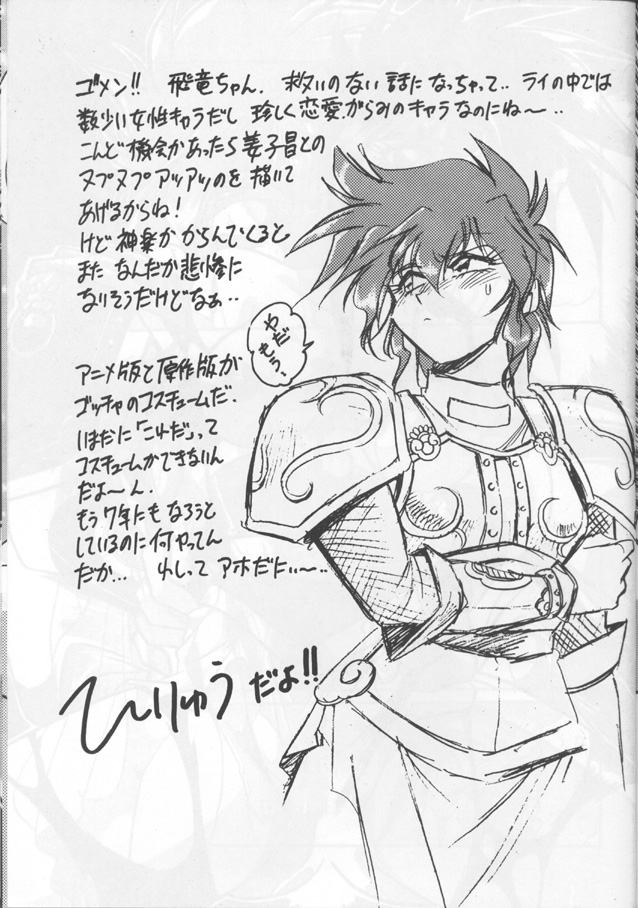 ゴメン!! 飛竜ちゃん. 救いのない話になっちゃって‥ ライの中では
数少い女性キャラだし 珍しく恋愛がらみのキャラなのにね〜‥
こんど機会があったら姜子昌との
ヌプヌプ アツアツのを 描いて
あげるからね!
けど 神楽が からんでくると
また なんだか悲惨に
なりそうだけどなぁ‥
やだ
もう.
アニメ版と原作版が
ゴッチャのコスチュームだ.
いまだに「これだ」って
コスチュームができないん
だよ〜ん.
もう7年にもなろうと
しているのに何やってん
だか… わしって アホだに〜‥
ひりゅう だよ!!